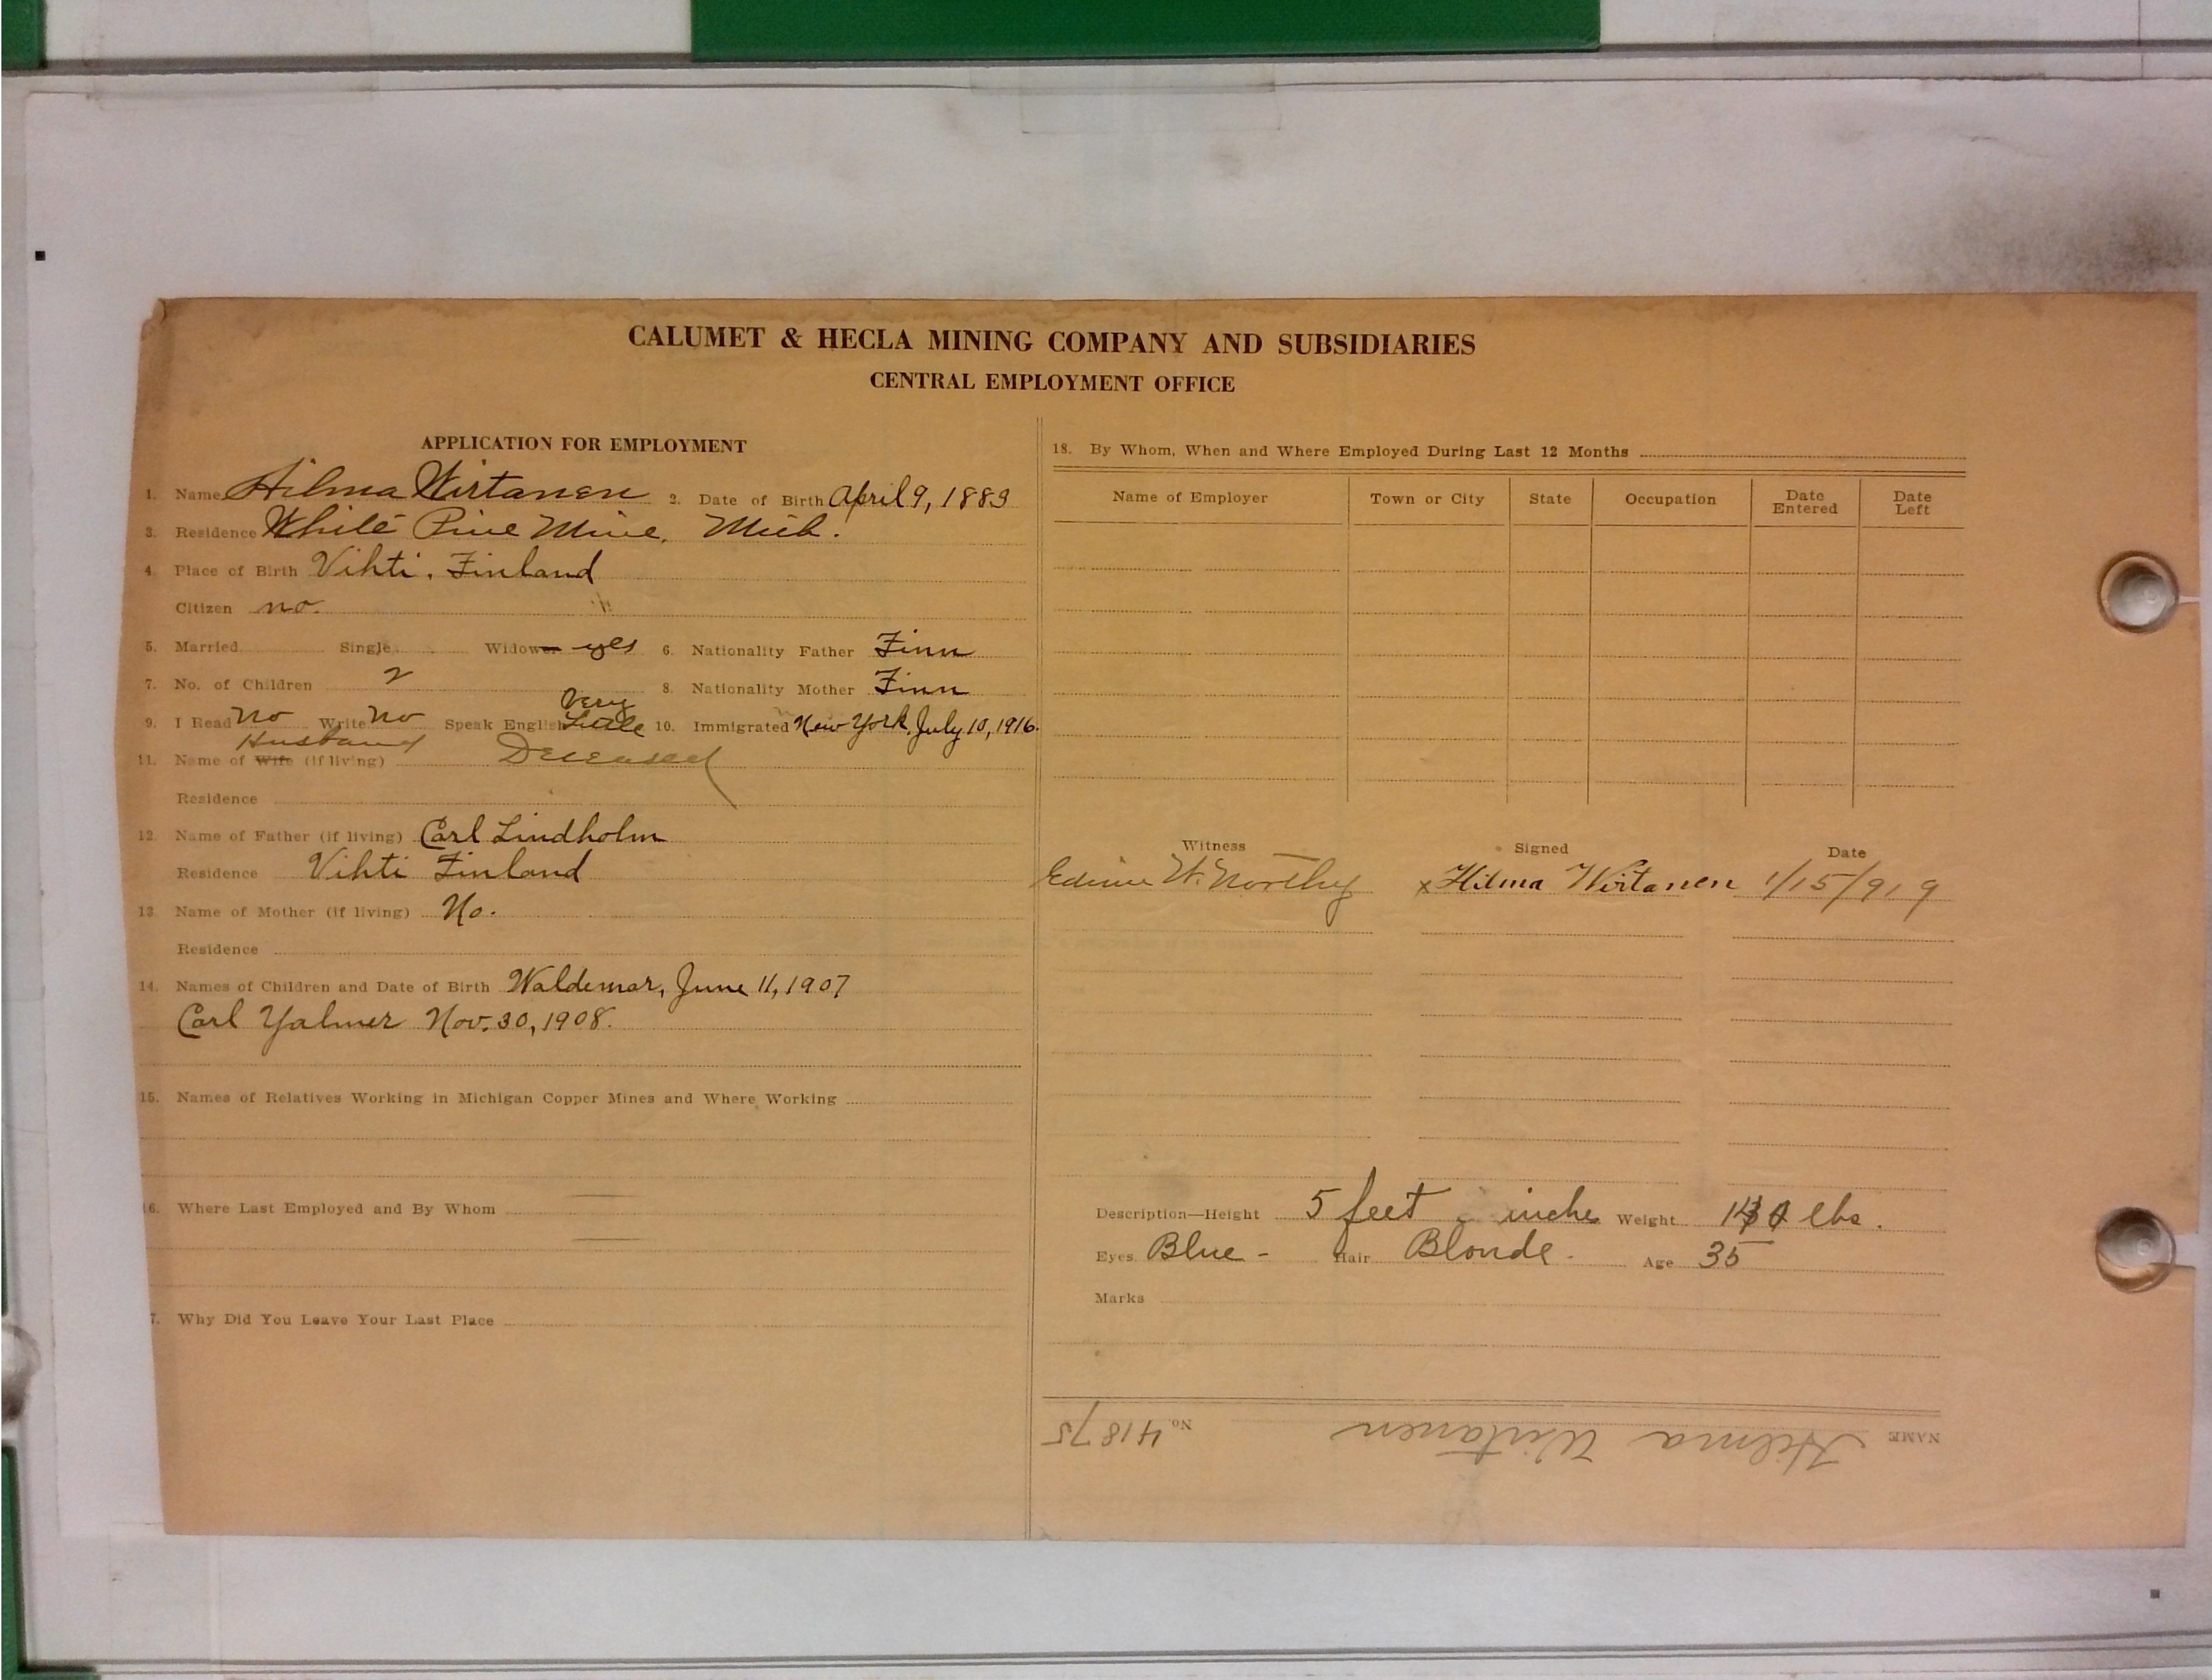 CALUMET & HECLA MINING COMPANY AND SUBSIDIARIES
CENTRAL EMPLOYMENT OFFICE
APPLICATION FOR EMPLOYMENT
1. Name Hilma Wirtanen 2. Date of Birth April 9, 1883
3. Residence White Pine Mine, Mich.
4. Place of Birth Vihti, Finland
Citizen no.
5. Married Single Widower yes 6. Nationality Father Finn
7. No. of Children 2 8. Nationality Mother Finn
9. I Read No Write No Speak English Very Little 10. Immigrated New York, July 10, 1916.
Husband
11. Name of Wife (if living) Deceased
Residence
12. Name of Father (if living) Carl Lindholm
Residence Vihti Finland
13. Name of Mother (if living) No.
Residence
14. Names of Children and Date of Birth Waldemar, June 11, 1907
Carl Yalmer Nov. 30, 1908.
15. Names of Relatives Working in Michigan Copper Mines and Where Working
16. Where Last Employed and By Whom
7. Why Did You Leave Your Last Place
18. By Whom, When and Where Employed During Last 12 Months
Name of Employer Town or City State Occupation Date Entered Date Left
Witness Signed Date
W. Northey x Hilma Wirtanen 1/15/919
Description—Height 5 feet inche Weight lbs.
Eyes Blue - Hair Blonde. Age 35
Marks
NAME Hilma Wirtanen No. 41875